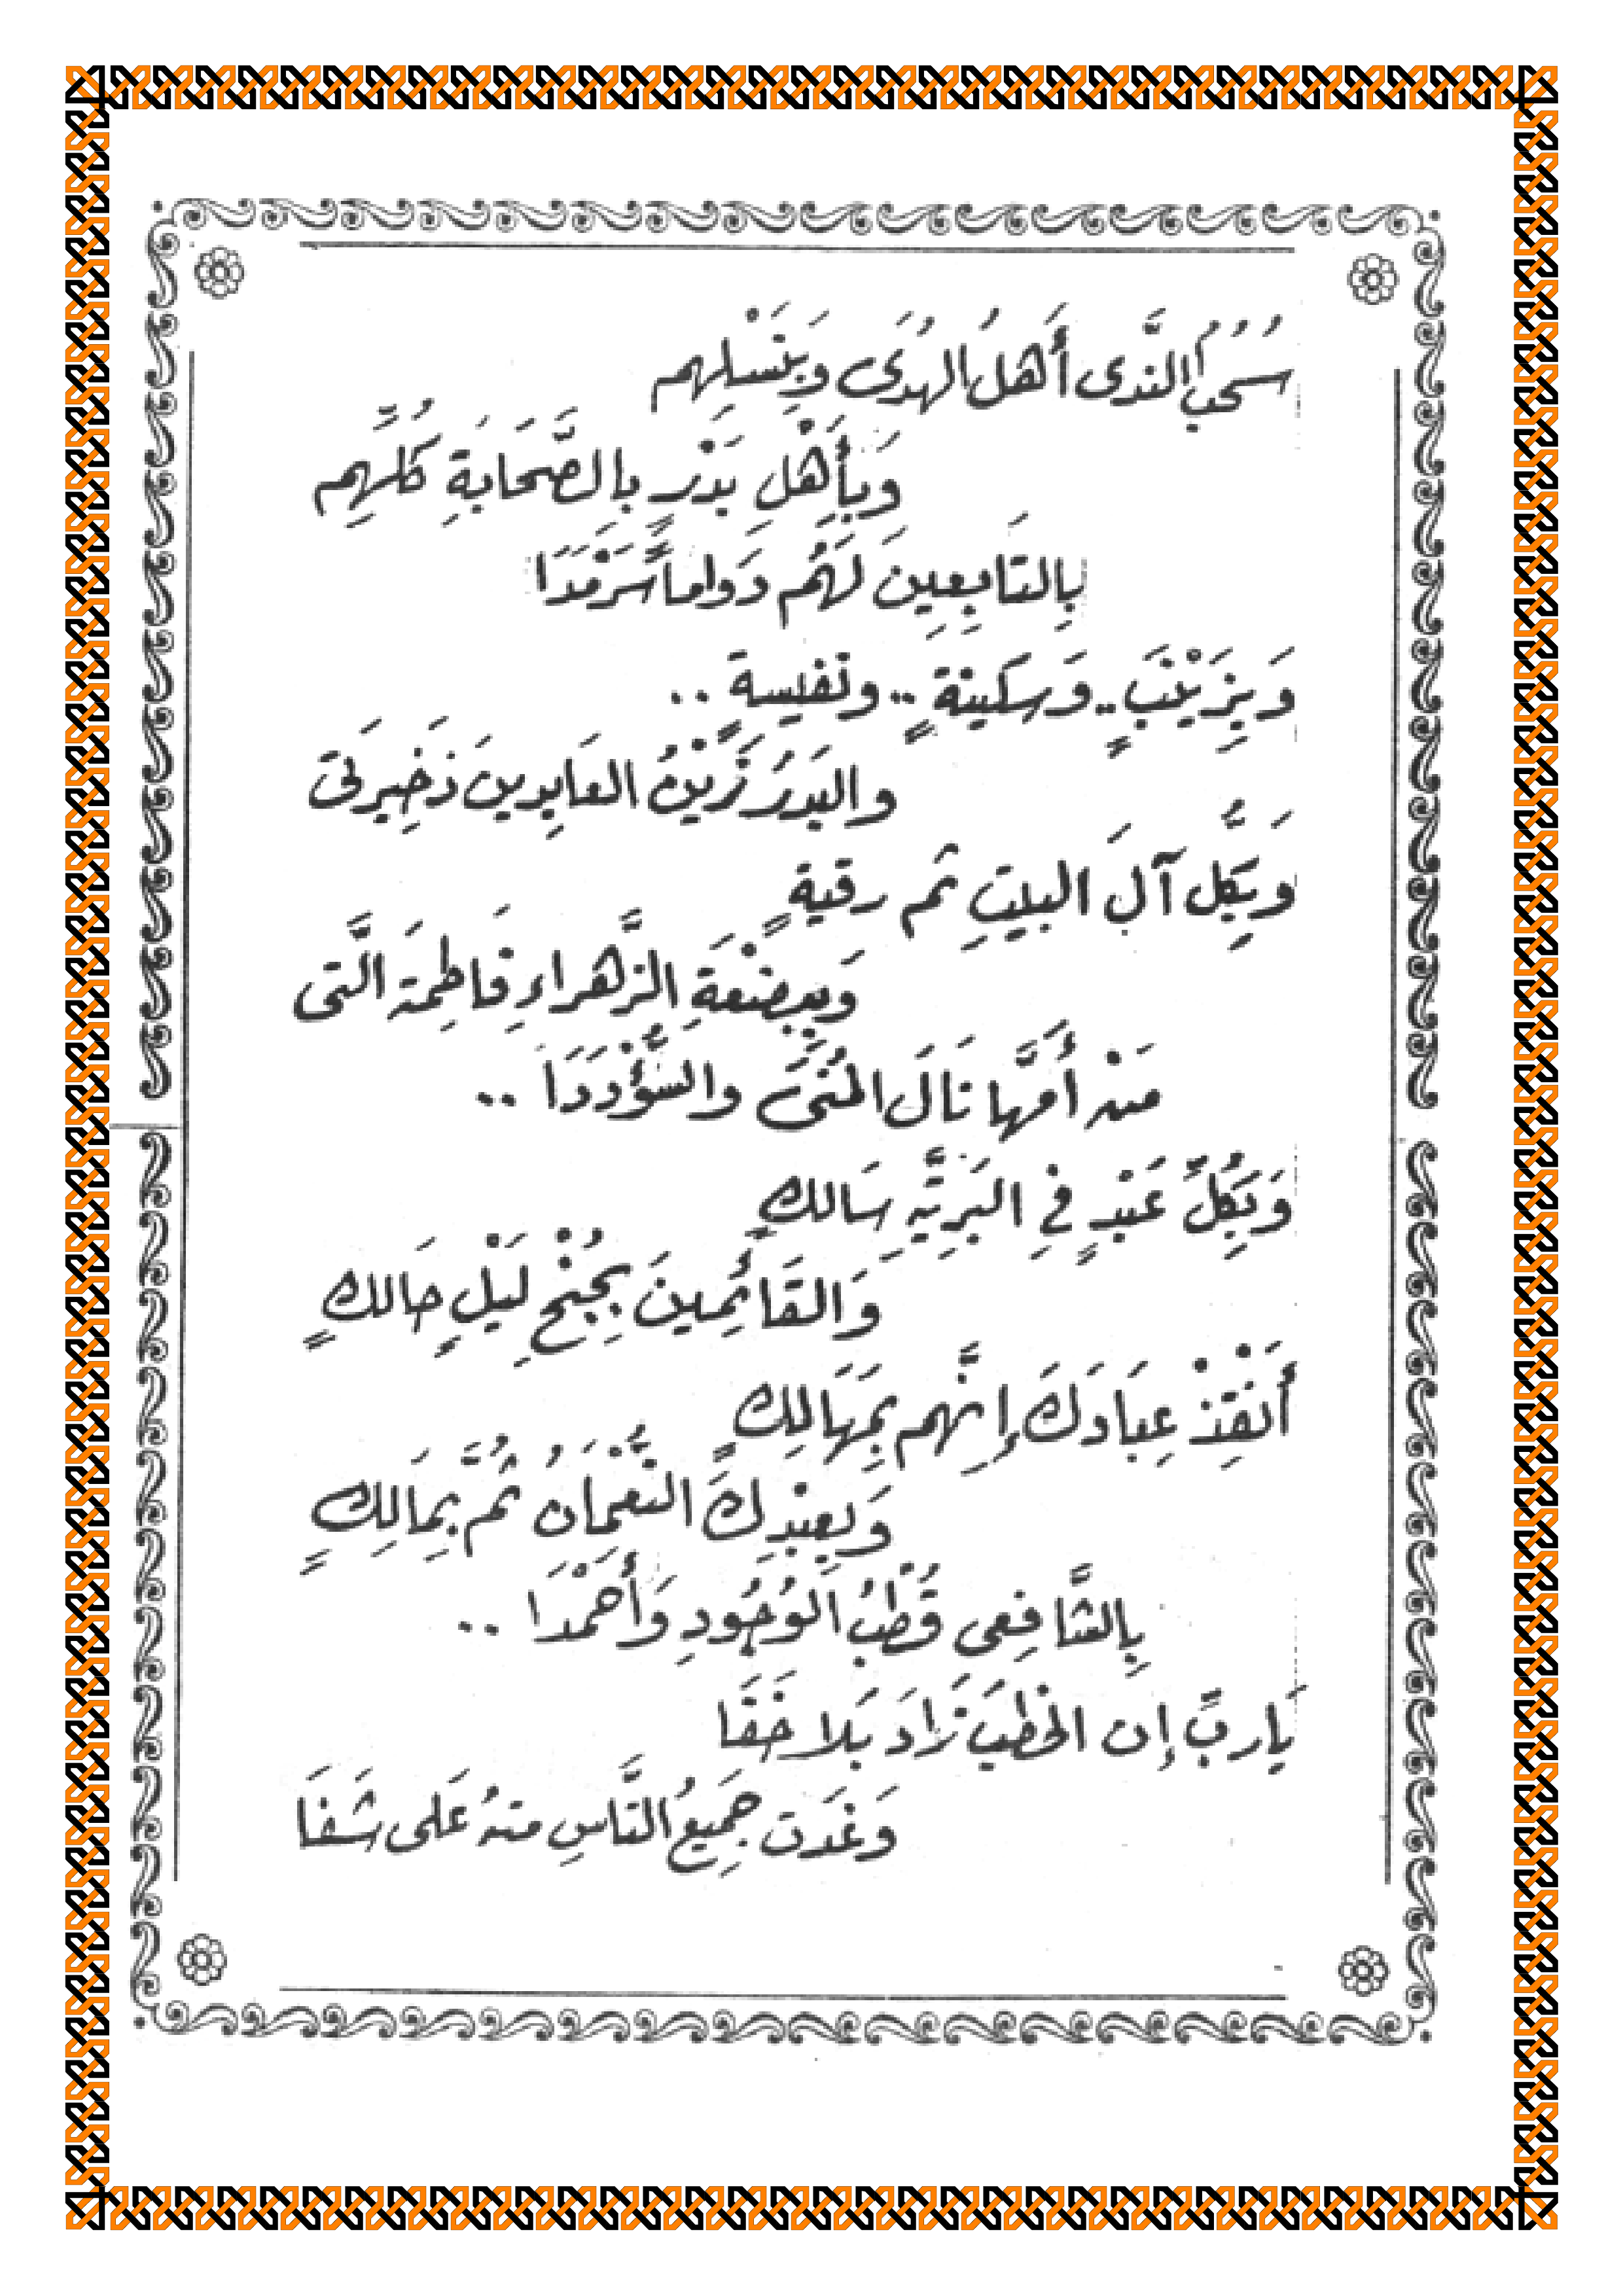 سُحُبُ النَّدى أَهلُ الهُدَى وَبِنَسْلِهم
وَبِأَهْلِ بَدْرٍ بالصَّحَابَةِ كُلِّهِم
بِالتَابِعِينِ لَهُم دَواماً سَرْمَدَا
وَبِزَيْنَبٍ .. وَسكينةٍ .. ونفيسةٍ ..
والبَدرُ زَيْنُ العَابِدِينَ ذَخِيرَتى
وَبِكُلِّ آلَ البيتِ ثم رقيةٍ
وَبِبِضْعَةِ الزَّهراءِ فَاطِمَة الَّتى
مَنْ أَمَّها نَالَ المُنَى والسُّؤْدَدَا ..
وَبِكُلِّ عَبْدٍ فِى البَرِيَّةِ سَالكٍ
وَالقَائِمينَ بِجُنْحِ لَيْلٍ حَالكٍ
أَنْقِذْ عِبَادَكَ إِنَّهم بِمَهَالِكٍ
وَبِعَبْدِكَ النُّعْمَانُ ثُمَّ بِمَالِكٍ
بِالشَّافِعِى قُطْبُ الوُجُودِ وَأَحْمَدَا ..
يَارَبِّ إن الخطبَ زَادَ بَلا خَفَا
وَغَدَت جَمِيعُ النَّاسِ منهُ عَلى شَفَا